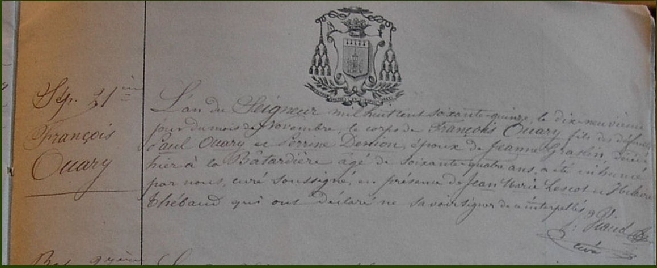 Sep. 21ième
François
Ouary
L'an du Seigneur mil huit cent soixante quinze le dix neuvième
jour du mois de Novembre le corps de François Ouary, fils des défunts
Paul Ouary et Perrine Denion, époux de Jeanne, décédé
hier à la Batardière agé de soixante quatre ans, a été inhumé
par nous, curé soussigné, en présence de Jean Marie et
Thébaud qui ont déclaré ne savoir signer de ce interpellés
curé